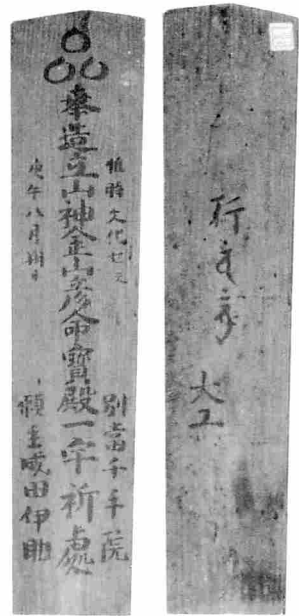 奉造立山神金山彦命寶殿一宇祈處
惟時文化七天
庚午八月朔日
別當千手院
願主成田伊助
大工